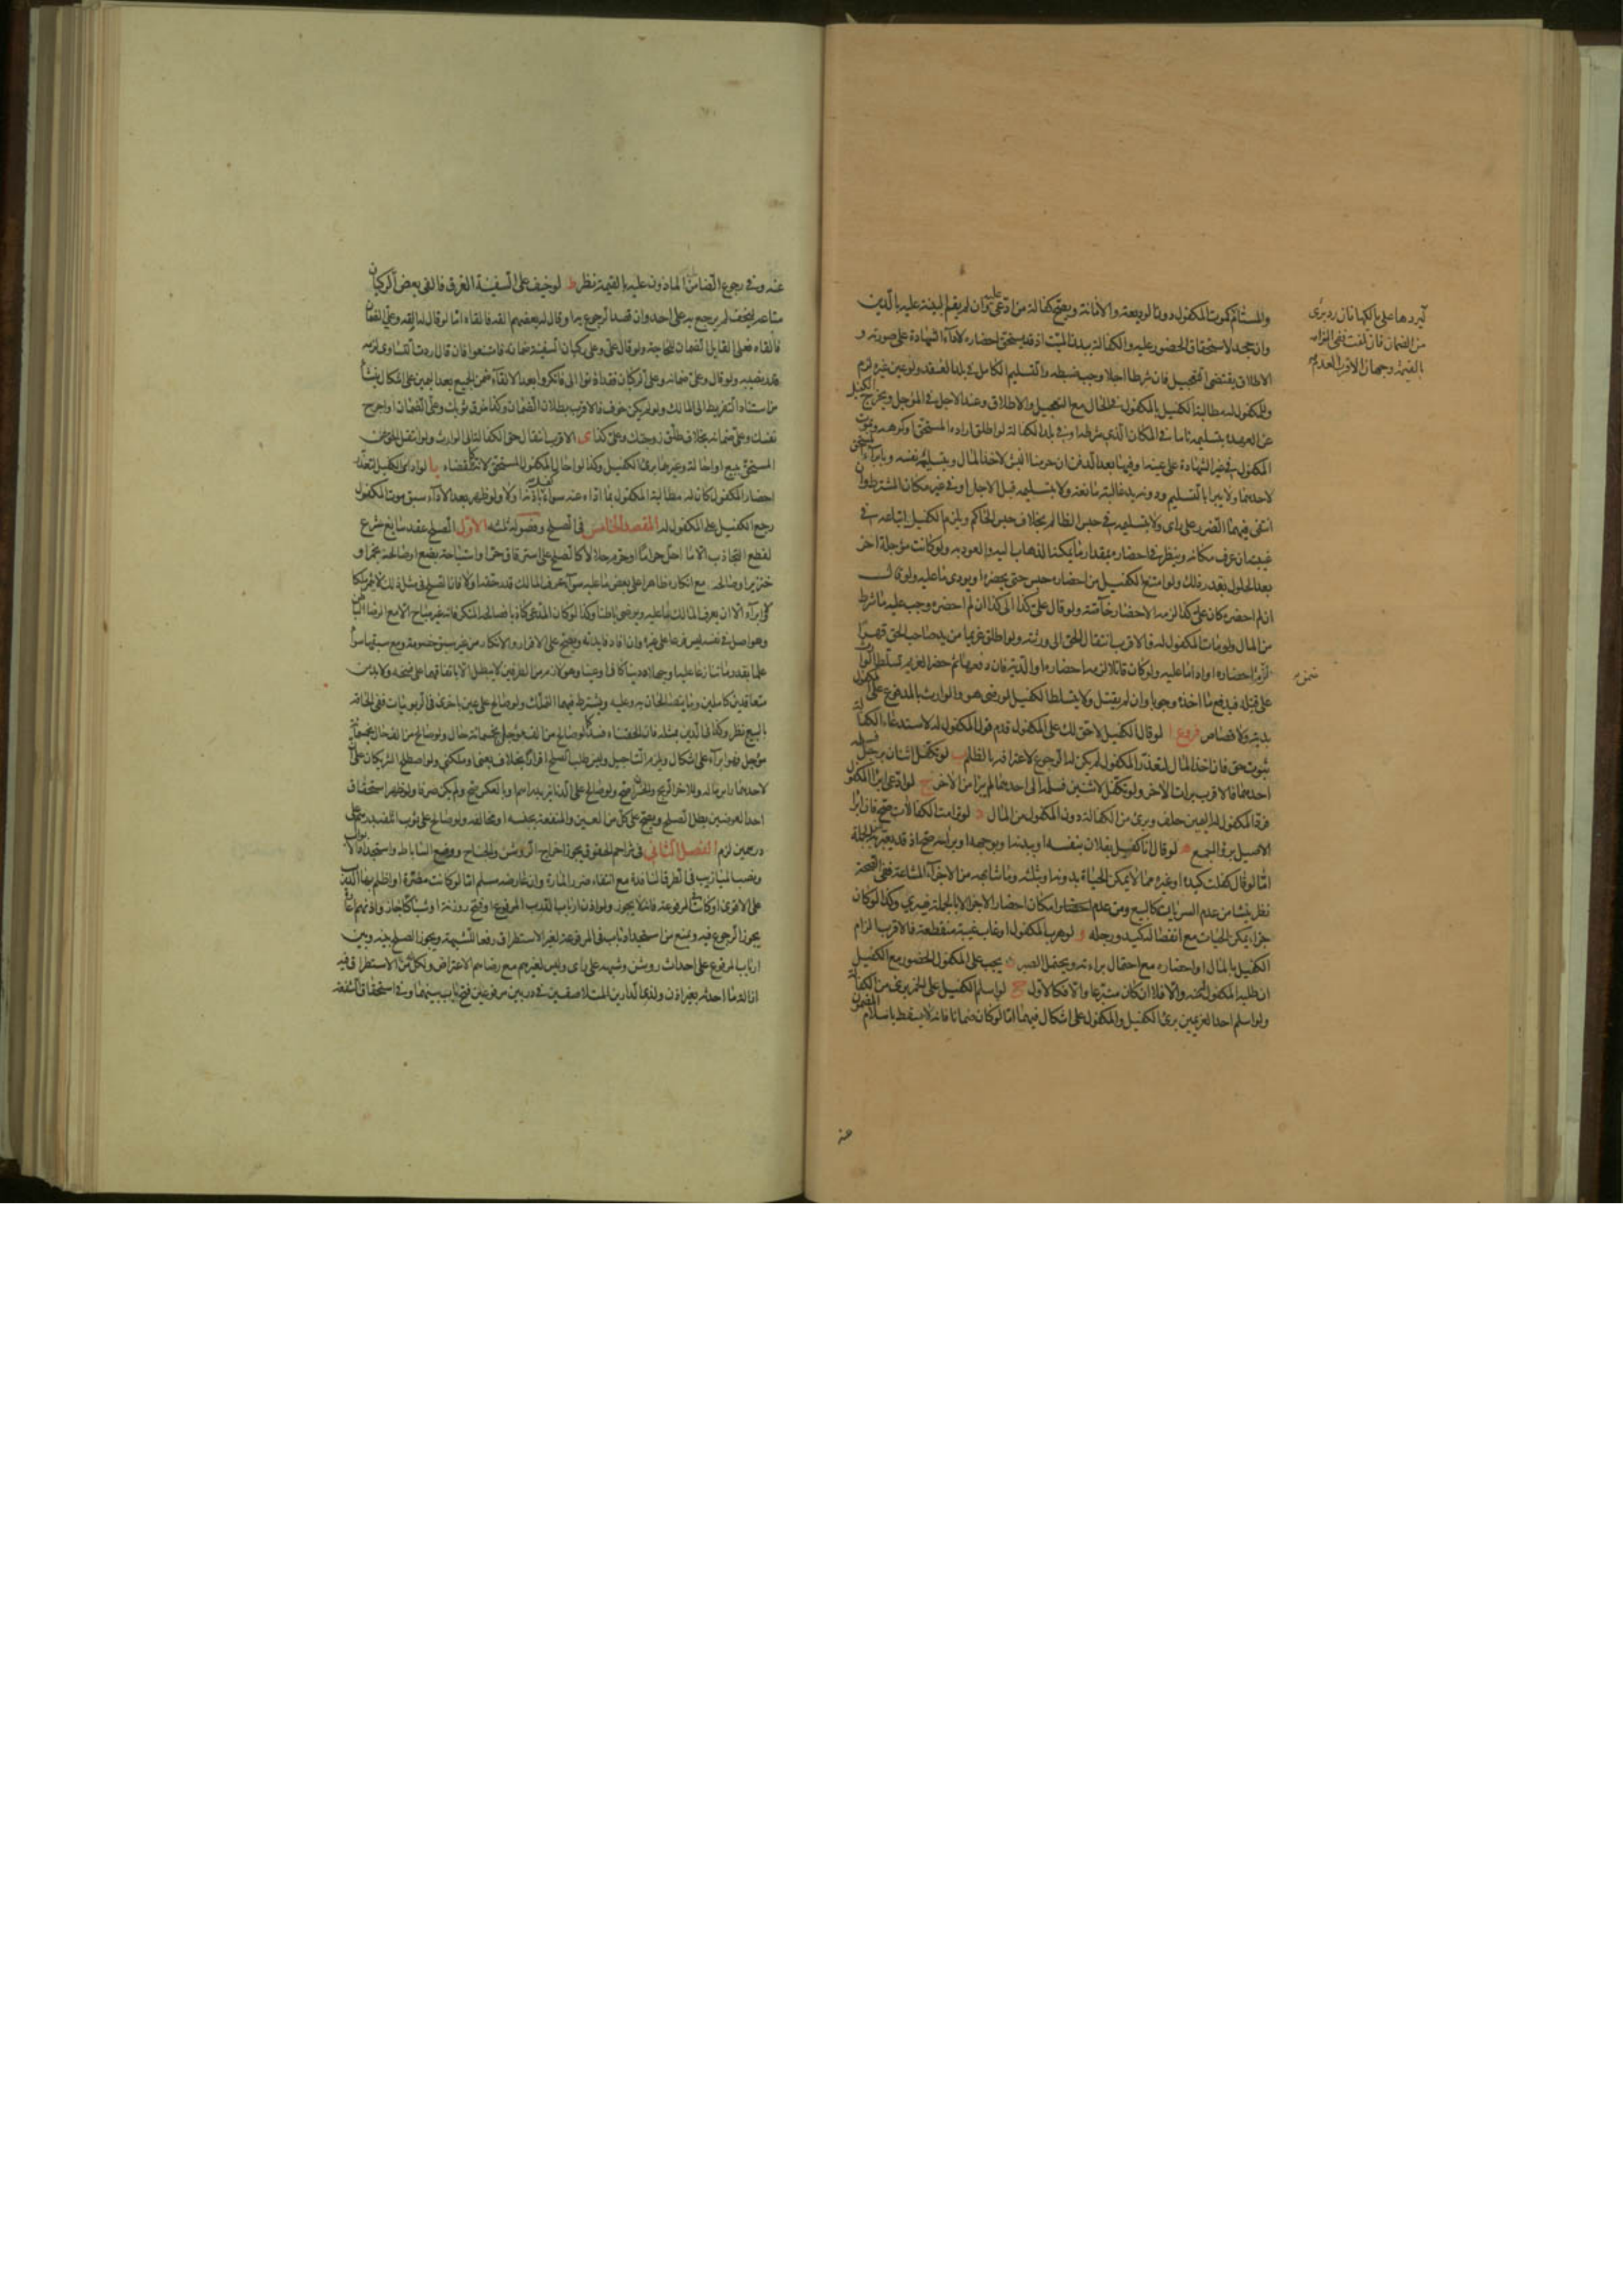 والمستأجر كموت المكفول دون الوديعة والأمانة ويصح كفالة من ادعى عليه وان لم يقم البينة عليه بالدين
وان جحد لاستحقاق الحضور عليه والكفالة ببدن الميت اذ قد يستحق احضاره لاداء الشهادة على صورته و
الاطلاق يقتضى التعجيل فان شرطا اجلا وجب ضبطه والتسليم الكامل في بلد العقد ولو عين غيره لزم
وللمكفول له مطالبة الكفيل بالمكفول في الحال مع التعجيل والاطلاق وعند الاجل في المؤجل ويخرج الكفيل
عن العهدة بتسليمه تاما في المكان الذي شرطه او في بلد الكفالة لو اطلق اراده المستحق او كرهه وبموت
المكفول في غير الشهادة على عينه وفيها بعد الدفن ان حرمنا النبش لاخذ المال وبتسليمه نفسه وبابراء المستحق
لاحدهما ولا يبرأ بالتسليم ودونه يد غالبة مانعة ولا بتسليمه قبل الاجل او في غير مكان المشترط وان
انتفى فيهما الضرر على راى ولا بتسليمه في حبس الظالم بخلاف حبس الحاكم ويلزم الكفيل اتباعه في
غيبته ان عرف مكانه وينظر في احضاره بمقدار ما يمكنه الذهاب اليه والعود به ولو كانت مؤجلة اخر
بعد الحلول بقدر ذلك ولو امتنع الكفيل من احضاره حبس حتى يحضره او يودى ما عليه ولو قال
ان لم احضره كان على كذا لزمه الاحضار خاصة ولو قال على كذا الى كذا ان لم احضره وجب عليه ما شرط
من المال ولو مات المكفول له فالاقرب انتقال الحق الى ورثته ولو اطلق غريما من يد صاحب الحق قهرا
الزم احضاره او اداء ما عليه ولو كان قاتلا لزمه احضاره او الدية فان دفعها ثم حضر الغريم تسلط الوارث
على قتله فيدفع ما اخذه وجوبا وان لم يقتل ولا يتسلط الكفيل لو رضى هو والوارث بالمدفوع على المكفول
بدية ولا قصاص فروع ا لو قال الكفيل لا حق لك على المكفول قدم قول المكفول له لاستدعاء الكفالة
ثبوت حق فان اخذ المال لتعذر المكفول لم يكن له الرجوع لاعترافه بالظلم ب لو تكفل اثنان برجل فسلمه
احدهما فالاقرب برات الاخر ولو تكفل لاثنين فسلمه الى احدهما لم يبرأ من الاخر ج لو ادعى ابراء المكفول
فرد المكفول له اليمين حلف وبرئ من الكفالة دون المكفول من المال د لو ترامت الكفالات صح فان ابرا
الاصيل برؤا اجمع ه لو قال انا كفيل بفلان بنفسه او ببدنه او بوجهه او براسه صح اذ قد يعبر به عن الجملة
اما لو قال كفلت كبده او غيره مما لا يمكن الحياة بدونه او بثلثه وما شابهه من الاجزاء المشاعة ففى الصحة
نظر ينشا من عدم السريان كالبيع ومن عدم امكان احضار الاجزاء الا بالجملة فيسرى وكذا لو كان
جزء يمكن الحيات مع انفصاله كيده ورجله و لو هرب المكفول او غاب غيبة منقطعة فالاقرب الزام
الكفيل بالمال او احضاره مع احتمال براءته ويحتمل الصبر ز يجب على المكفول الحضور مع الكفيل
ان طلبه المكفول له منه والا فلا ان كان متبرعا والا فكالاول ح لو اسلم الكفيل على الخمر برئ من الكفالة
ولو اسلم احد الغريمين برئ الكفيل والمكفول على اشكال فيهما اما لو كان ضمانا فانه لا يسقط باسلام المضمون
عنه
من الضمان فان تلفت ففى الزامه
بالقيمة وجهان الاقرب العدم
عنه وفي رجوع الضامن الماذون عليه بالقيمة نظر ط لو خيف على السفينة الغرق فالقى بعض الركبان
متاعه لتخف لم يرجع به على احد وان قصد الرجوع به او قال له بعضهم القه فالقاه اما لو قال له القه وعلى الضمان
فالقاه فعلى القايل الضمان للحاجة ولو قال على وعلى ركبان السفينة ضمانه فامتنعوا فان قال اردت التساوى لزمه
قدر نصيبه ولو قال وعلى ضمانه وعلى الركبان فقد اذنوا لى فانكروا بعد الالقاء ضمن الجميع بعد اليمين على اشكال ينشأ
من استناد التفريط الى المالك ولو لم يكن خوف فالاقرب بطلان الضمان وكذا مزق ثوبك وعلى الضمان او اجرح
نفسك وعلى ضمانه بخلاف طلق زوجتك وعلى كذا ى الاقرب انتقال حق الكفالة الى الوارث ولو انتقل الحق عن
المستحق ببيع او احالة وغيرهما برئ الكفيل وكذا لو احال المكفول المستحق لانه كالقضاء يا لو ادى الكفيل لتعذر
احضار المكفول كان له مطالبة المكفول بما اداه عنه سواء كفل باذنه او لا ولو ظهر بعد الاداء سبق موت المكفول
رجع الكفيل على المكفول له المقصد الخامس في الصلح وفصوله ثلثة الاول الصلح عقد سايغ شرع
لقطع التجاذب الا ما احل حراما او حرم حلالا كالصلح على استرقاق حر او استباحة بضع او صالحه بخمر او
خنزير او صالحه مع انكاره ظاهرا على بعض ما عليه سواء عرف المالك قدر حقه او لا فان الصلح في مثل ذلك لا يثمر ملكا
ولا ابراء الا ان يعرف المالك ما عليه ويرضى باطنا وكذا لو كان المدعى كاذبا فصالحه المنكر فانه غير مباح الا مع الرضا الباطن
وهو اصل في نفسه ليس فرعا على غيره وان افاد فايدته ويصح على الاقرار والانكار من غير سبق خصومة ومع سبقها سواء
علما بقدر ما تنازعا عليه او جهلاه دينا كان او عينا وهو لازم من الطرفين لا يبطل الا باتفاقهما على فسخه ولا بد من
متعاقدين كاملين وما يتصالحان به وعليه ويشترط فيهما التملك ولو صالح على عين باخرى في الربويات ففى الحاقه
بالبيع نظر وكذا في الدين بمثله فان الحقناه فسد لو صالح من الف مؤجل بخمسمائة حال ولو صالح من الف حال بخمسمائة
مؤجل فهو ابراء على اشكال ويلزم التاجيل وليس طلب الصلح اقرارا بخلاف بعنى او ملكنى ولو اصطلح الشريكان على ان
لاحدهما راس ماله وللاخر الربح والخسران صح ولو صالح على الدنانير بدراهم او بالعكس صح ولم يكن صرفا ولو ظهر استحقاق
احد العوضين بطل الصلح ويصح على كل من العين والمنفعة بجنسه او مخالفه ولو صالح على ثوب اتلفه بدرهم على
درهمين لزم الفصل الثانى في تزاحم الحقوق يجوز اخراج الرواشن والجناح ووضع الساباط واستجداد الابواب
ونصب الميازيب في الطرق النافذة مع انتفاء ضرر المارة وان عارضه مسلم اما لو كانت مضرة او اظلم بها الدرب
على الاقوى او كانت في المرفوعة فانه لا يجوز ولو اذن ارباب الدرب المرفوع او فتح روزنة او شباكا جاز واذنهم اعارة
يجوز الرجوع فيه ويمنع من استجداد باب في المرفوعة لغير الاستطراق رفعا للشبهة ويجوز الصلح بينه وبين
ارباب المرفوع على احداث روشن وشبهه على راى وليس لغيرهم مع رضاهم الاعتراض ولكل من الاستطراق فيه
ازالة ما احدثه بغير اذن ولذى الدارين المتلاصقين في دربين مرفوعين فتح باب بينهما وفي استحقاق الشفعة